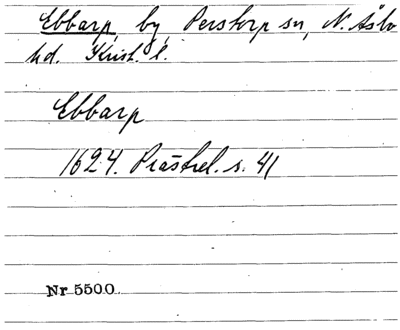 Ebbarp, by, Perstorp sn, N. Åsbo
hd. Krist. l.
Ebbarp
1624. Prästrel. s. 41
Nr 5500